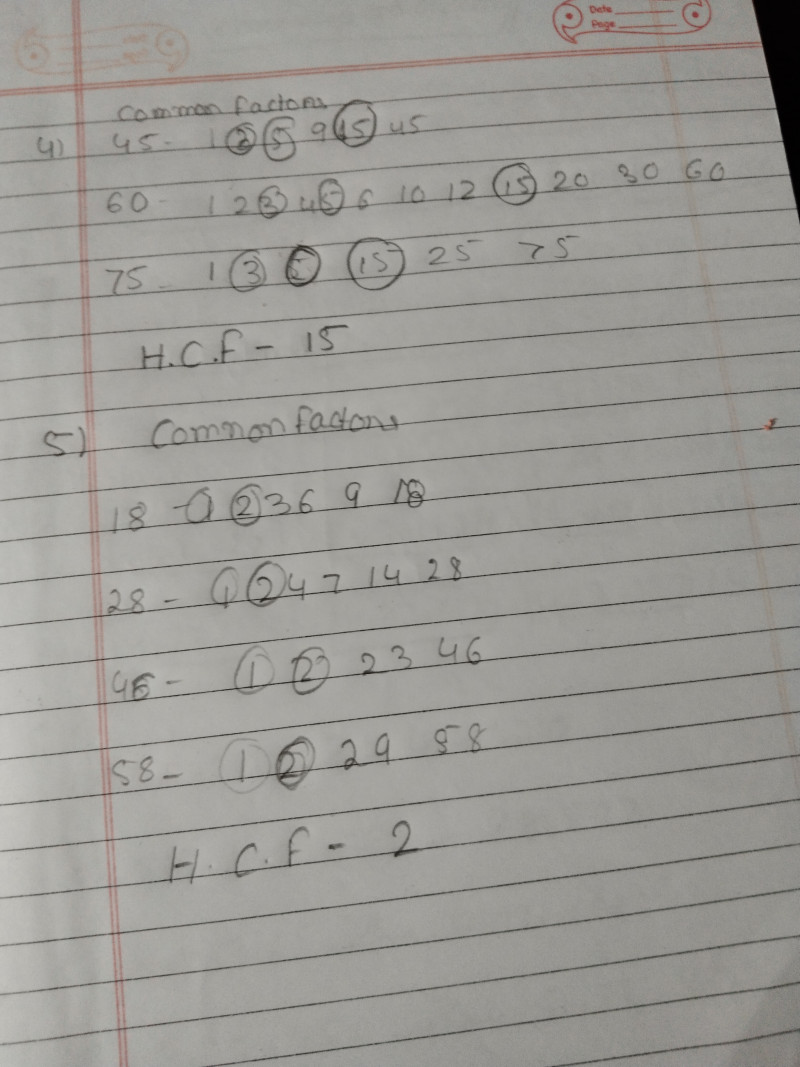 Date
Page
Common factors
4) 45- 1 3 5 9 15 45
60- 1 2 3 4 5 6 10 12 15 20 30 60
75- 1 3 5 15 25 75
H.C.F - 15
5) Common factors
18 - 1 2 3 6 9 18
28 - 1 2 4 7 14 28
46 - 1 2 23 46
58 - 1 2 29 58
H.C.F - 2